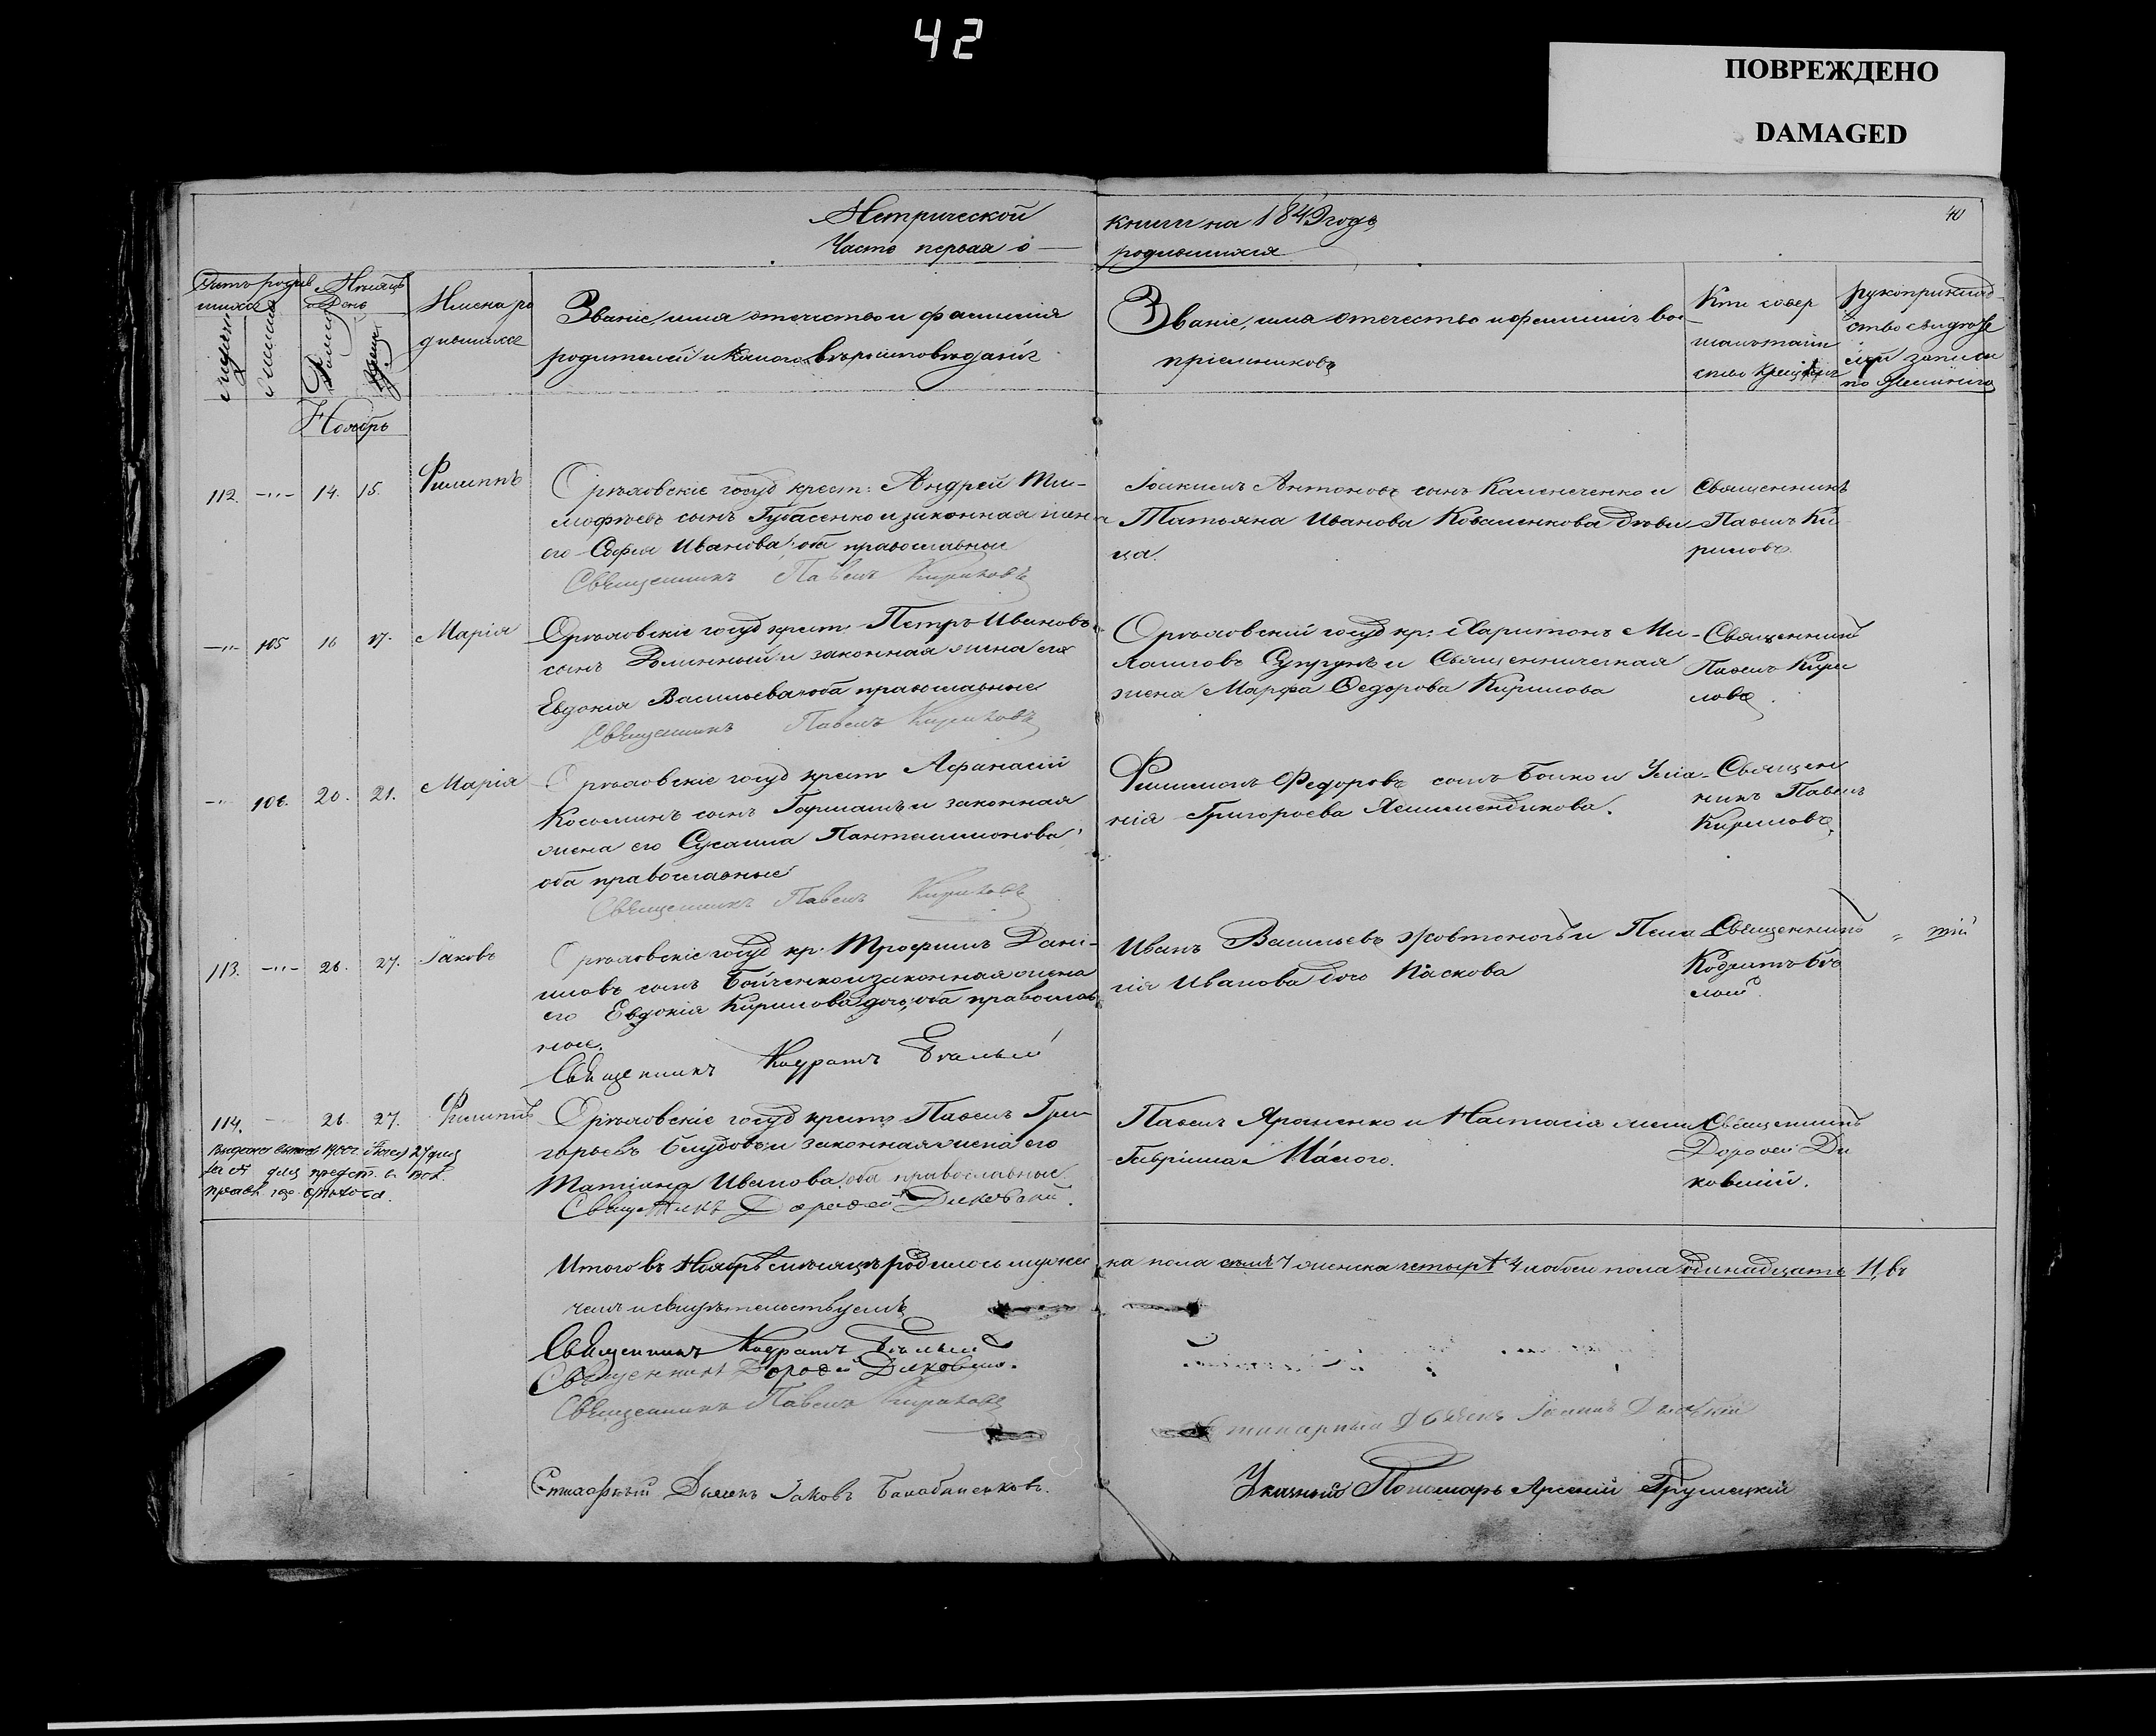 42
ПОВРЕЖДЕНО
DAMAGED
Метрической книги на 1849 годъ
40
Часть первая о родившихся
Имена ро
дившихся
Званіе, имя отечество и фамилія
родителей и какого вѣроисповѣданія
Званіе, имя отечество и фамилія вос
пріемниковъ
Кто совер
шалъ таин
ство крещенія
рукоприклад
ство свидѣте
лей записи
по желанію
Ноябрь
112. 14. 15. Филиппъ
Орѣховскіе госуд крест: Андрей Ти-
мофѣевъ сынъ Губасенко и законная жена
его София Иванова; оба православные
Священникъ Павелъ Кириловъ
Іоакимъ Антоновъ сынъ Каменченко и
Татьяна Иванова Коваленкова дѣви
ца.
Священникъ
Павелъ Ки
риловъ
105 16 17. Марія
Орѣховскіе госуд крест Петръ Ивановъ
сынъ Долинный и законная жена его
Евдокия Васильева оба православные
Священникъ Павелъ Кириловъ
Орѣховскій госуд кр: Харитонъ Ми-
хаиловъ Супрунъ и Священническая
жена Марфа Федорова Кирилова
Священникъ
Павелъ Кири
ловъ
106. 20. 21. Марія
Орѣховскіе госуд крест Афанасій
Косминъ сынъ Гармашъ и законная
жена его Сусанна Пантелимонова;
оба православные
Священникъ Павелъ Кириловъ
Филимонъ Федоровъ сынъ Бойко и Улія-
нія Григорьева
Священ
никъ Павелъ
Кириловъ
113. 26. 27. Іаковъ
Орѣховскіе госуд кр. Трофимъ Дани-
ловъ сынъ Бойченко и законная жена
его Евдокія Кирилова дочь, оба православ
ные.
Священникъ Кодратъ Бѣлый
Иванъ Васильевъ Жовтоногъ и Пела
гія Иванова дочь Паскова
Священникъ
Кодратъ Бѣ
лый
114. 26. 27. Филиппъ
Орѣховскіе госуд крест Павелъ Гри
горьевъ Блудовъ и законная жена его
Татіана Иванова, оба православные
Священникъ Дорофей Диковскій.
Павелъ Ярошенко и Настасія жена
Гавріила Малого.
Священникъ
Дорофей Ди
ковскій.
Итого въ Ноябрѣ мѣсяцѣ родилось мужес
ка пола семь 7 женска четыре 4 обоего пола одинадцать 11, въ
чемъ и свидѣтельствуемъ
Священникъ Кодратъ Бѣлый
Священникъ Дорофей Диковскій.
Священникъ Павелъ Кириловъ
Стихарный Дьячекъ Іаковъ Балабаненковъ.
Указный Пономарь Арсеній Грушецкій